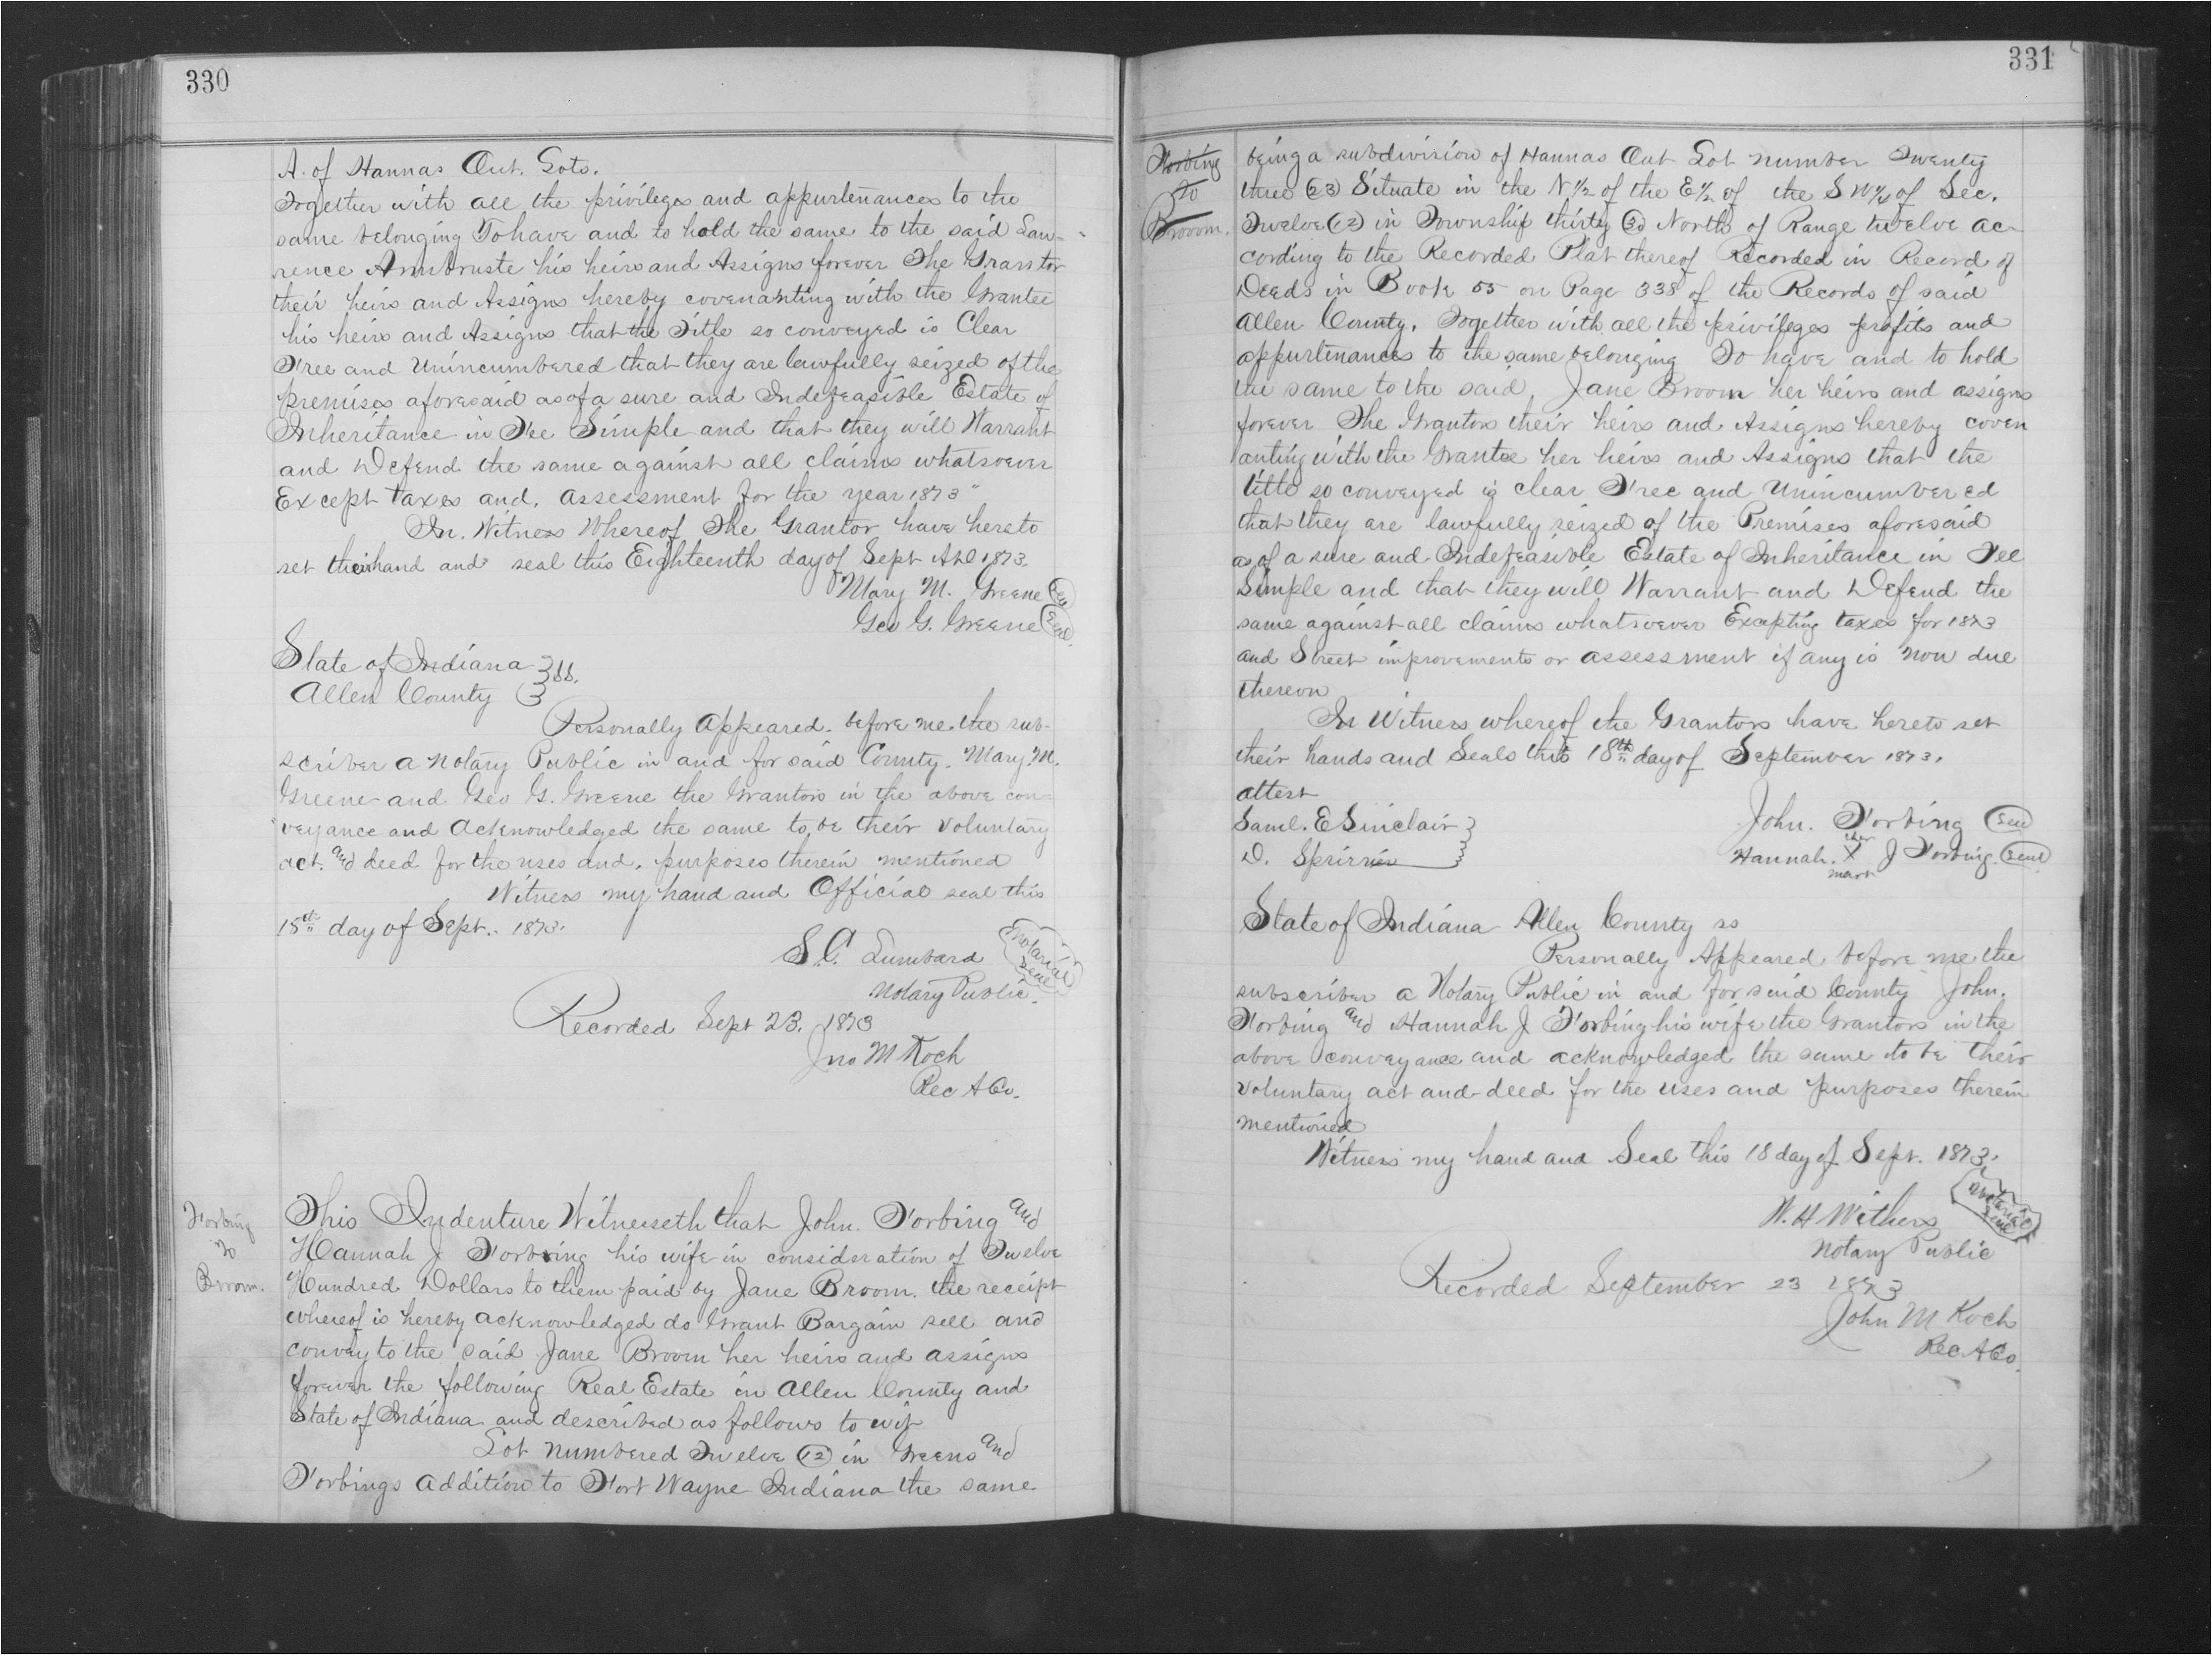 330
A. of Hannas Out. Lots.
Together with all the privileges and appurtenances to the
same belonging To have and to hold the same to the said Law-
rence his heirs and Assigns forever The Grantor
their heirs and Assigns hereby covenanting with the Grantee
his heirs and Assigns that the Title so conveyed is Clear
Free and Unincumbered that they are lawfully seized of the
premises aforesaid as of a sure and Indefeasible Estate of
Inheritance in Fee Simple and that they will Warrant
and Defend the same against all claims whatsoever
Except taxes and. assessment for the year 1873"
In. Witness Whereof The Grantor have hereto
set their hand and seal this Eighteenth day of Sept AD. 1873.
Mary M. Greene Seal
Geo G. Greene Seal
State of Indiana } ss.
Allen County }
Personally appeared. before me. the sub-
scriber a Notary Public in and for said County. Mary. M.
Greene and Geo G. Greene the Grantors in the above con-
veyance and acknowledged the same to, be their voluntary
act. and deed for the uses and. purposes therein mentioned
Witness my hand and Official seal this
18th day of Sept.. 1873.
S. C. Lumbard Notarial Seal
Notary Public.
Recorded Sept 23. 1873
Jno M Koch
Rec A Co.
Forbing
to
Broom.
This Indenture Witnesseth that John. Forbing and
Hannah J Forbing his wife in consideration of Twelve
Hundred Dollars to them paid by Jane Broom. the receipt
whereof is hereby acknowledged do Grant Bargain sell and
convey to the said Jane Broom her heirs and assigns
forever the following Real Estate in Allen County and
State of Indiana and described as follows to wit
Lot numbered Twelve (12) in Greens and
Forbings Addition to Fort Wayne Indiana the same
331
Forbing
to
Brooom.
being a subdivision of Hannas Out Lot number Twenty
three (23) Situate in the N 1/2 of the E 1/2 of the S W 1/4 of Sec.
Twelve (12) in Township thirty (30) North of Range twelve ac-
cording to the Recorded Plat thereof Recorded in Record of
Deeds in Book 55 on Page 338 of the Records of said
Allen County. Together with all the privileges profits and
appurtenances to the same belonging To have and to hold
the same to the said Jane Broom her heirs and assigns
forever The Grantors their heirs and Assigns hereby coven
anting with the Grantee her heirs and Assigns that the
title so conveyed is clear Free and Unincumbered
that they are lawfully seized of the Premises aforesaid
as of a sure and Indefeasible Estate of Inheritance in Fee
Simple and that they will Warrant and Defend the
same against all claims whatsoever Excepting taxes for 1873
and Street improvements or assessment if any is now due
thereon
In Witness whereof the Grantors have hereto set
their hands and Seals this 18th day of September 1873.
attest
Saml. E Sinclair }
D. }
John. Forbing Seal
Hannah. her X mark J Forbing. Seal
State of Indiana Allen County ss
Personally Appeared before me the
subscriber a Notary Public in and for said County John.
Forbing and Hannah J Forbing his wife the Grantors in the
above conveyance and acknowledged the same to be their
voluntary act and deed for the uses and purposes therein
mentioned
Witness my hand and Seal this 18 day of Sept. 1873.
W. H Withers Notarial Seal
Notary Public
Recorded September 23 1873
John M Koch
Rec A Co.